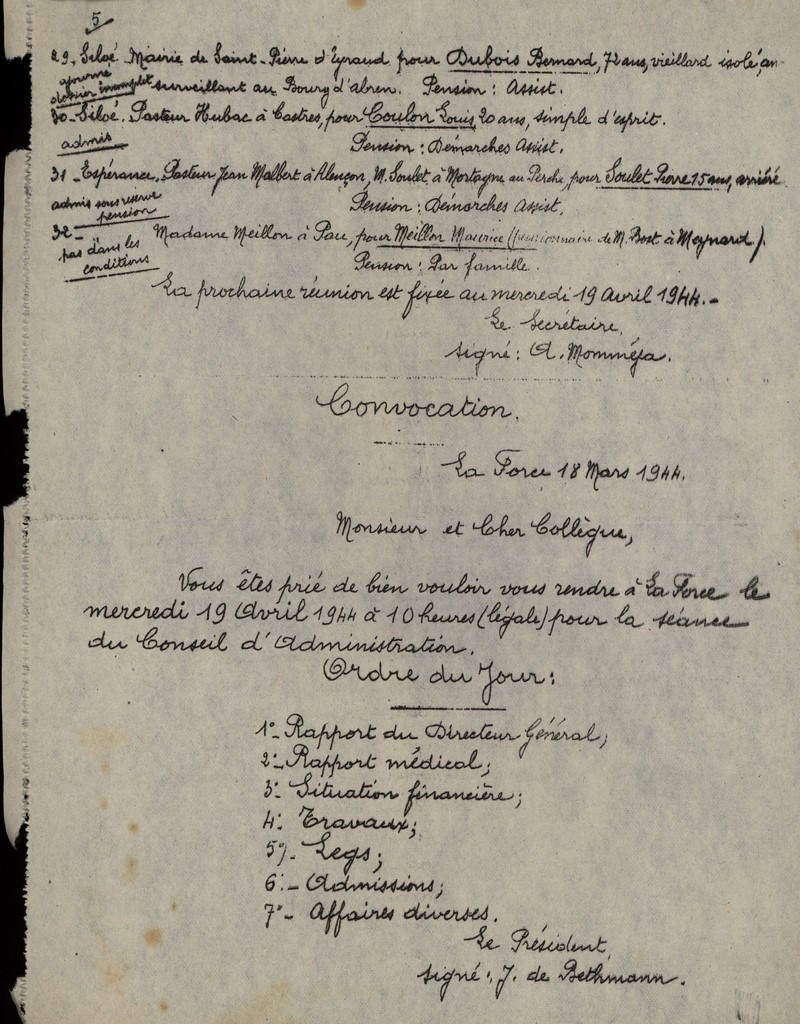 5
29-Siloé Mairie de Saint-Pierre d'Eyraud pour Dubois Bernard, 72 ans, vieillard isolé, an-
ajourné
dossier incomplet surveillant au Bourg d'abren. Pension: Assist.
30-Siloé. Pasteur Hubac à Castres, pour Coulon Louis, 20 ans, simple d'esprit.
admis Pension: Démarches Assist.
31-Espérance. Pasteur Jean Malbert à Alençon, M. Soulet, à Mortagne au Perche, pour Soulet Pierre 15 ans, arriéré
admis sous réserve
pension Pension: Démarches Assist.
32- Madame Meillon à Pau, pour Meillon Maurice (pensionnaire de M. Bost à Meynard).
pas dans les
conditions Pension: Par famille.
La prochaine réunion est fixée au mercredi 19 Avril 1944.-
Le Secrétaire,
signé: A. Momméja.
Convocation.
La Force 18 Mars 1944.
Monsieur et Cher Collègue,
Vous êtes prié de bien vouloir vous rendre à La Force le
mercredi 19 Avril 1944 à 10 heures (légale) pour la séance
du Conseil d'Administration.
Ordre du Jour:
1°- Rapport du Directeur Général;
2°- Rapport médical;
3°- Situation financière;
4°- Travaux;
5°/- Legs;
6°- Admissions;
7°- Affaires diverses.
Le Président,
signé: J. de Bethmann.